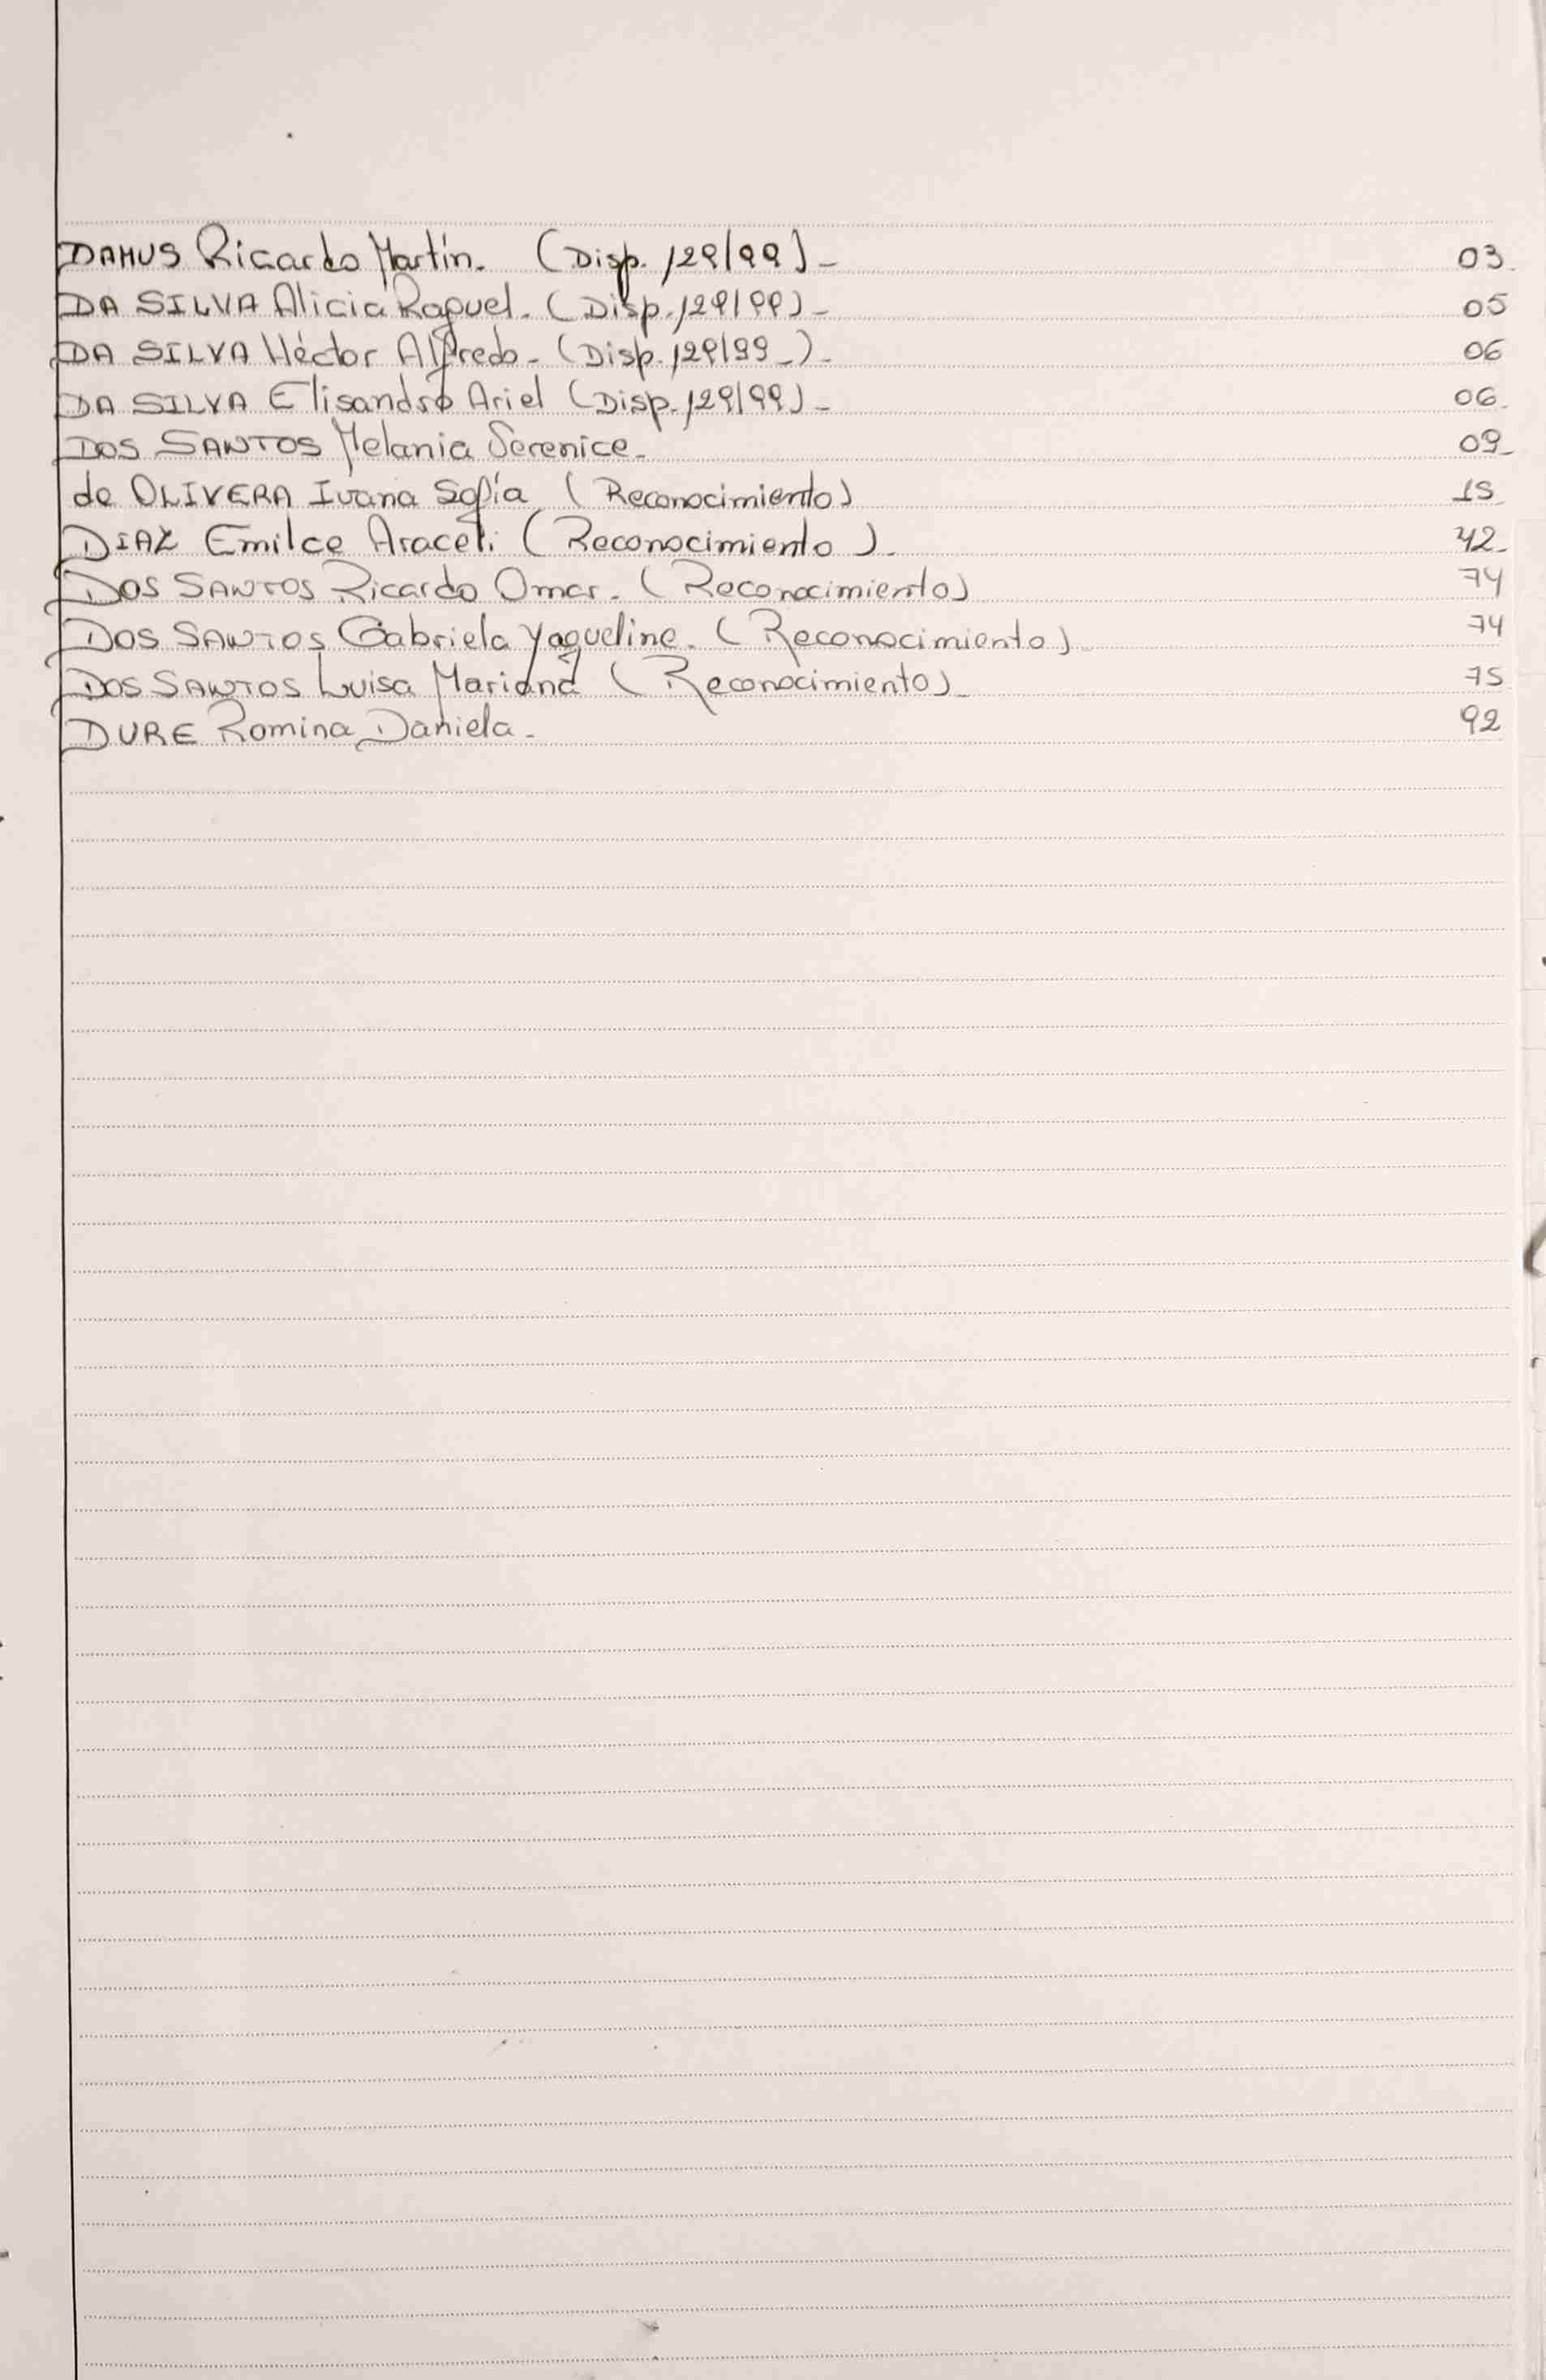 DAMUS Ricardo Martín. (Disp. 129/99)- 03-
DA SILVA Alicia Raquel. (Disp. 129/99)- 05
DA SILVA Héctor Alfredo- (Disp. 129/99-)- 06
DA SILVA Elisandro Ariel (Disp. 129/99)- 06-
DOS SANTOS Melania Serenice- 09-
de OLIVERA Ivana Sofía (Reconocimiento) 15-
DIAZ Emilce Araceli (Reconocimiento)- 42-
DOS SANTOS Ricardo Omar. (Reconocimiento) 74
DOS SANTOS Gabriela Yaqueline. (Reconocimiento)- 74
DOS SANTOS Luisa Mariana (Reconocimiento)- 75
DURE Romina Daniela- 92